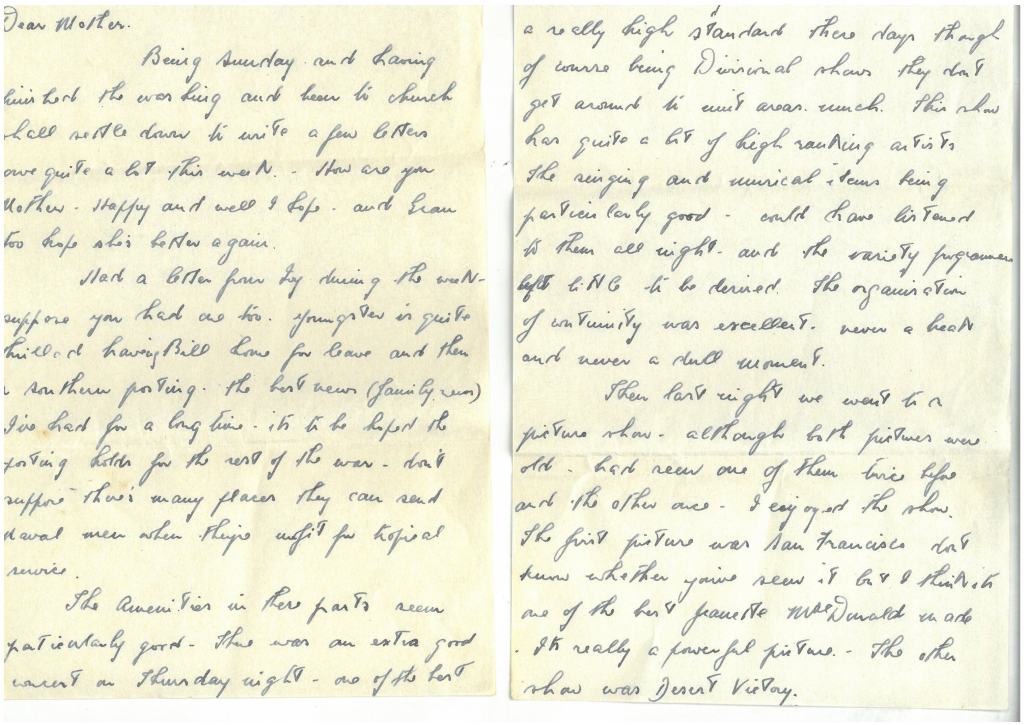 Dear Mother.
Being Sunday and having
finished the washing and been to church
shall settle down to write a few letters
owe quite a lot this week. - How are you
Mother - Happy and well I hope - and Gran
too hope she's better again.
Had a letter from Ivy during the week -
suppose you had one too. youngster is quite
thrilled having Bill home for leave and then
a southern posting. The best news (family news)
I've had for a long time - its to be hoped the
posting holds for the rest of the war - don't
suppose there's many places they can send
Naval men when they're unfit for tropical
service.
The Amenities in these parts seem
particularly good - There was an extra good
concert on Thursday night - one of the best
a really high standard these days though
of course being Divisional shows they don't
get around to unit areas much. This show
has quite a bit of high ranking artists
The singing and musical items being
particularly good - could have listened
to them all night - and the variety programme
left little to be desired. The organisation
of continuity was excellent. never a break
and never a dull moment.
Then last night we went to a
picture show - although both pictures were
old - had seen one of them twice before
and the other once - I enjoyed the show.
The first picture was San Francisco don't
know whether you've seen it but I think its
one of the best Jeanette MacDonald made
. Its really a powerful picture. - The other
show was Desert Victory.